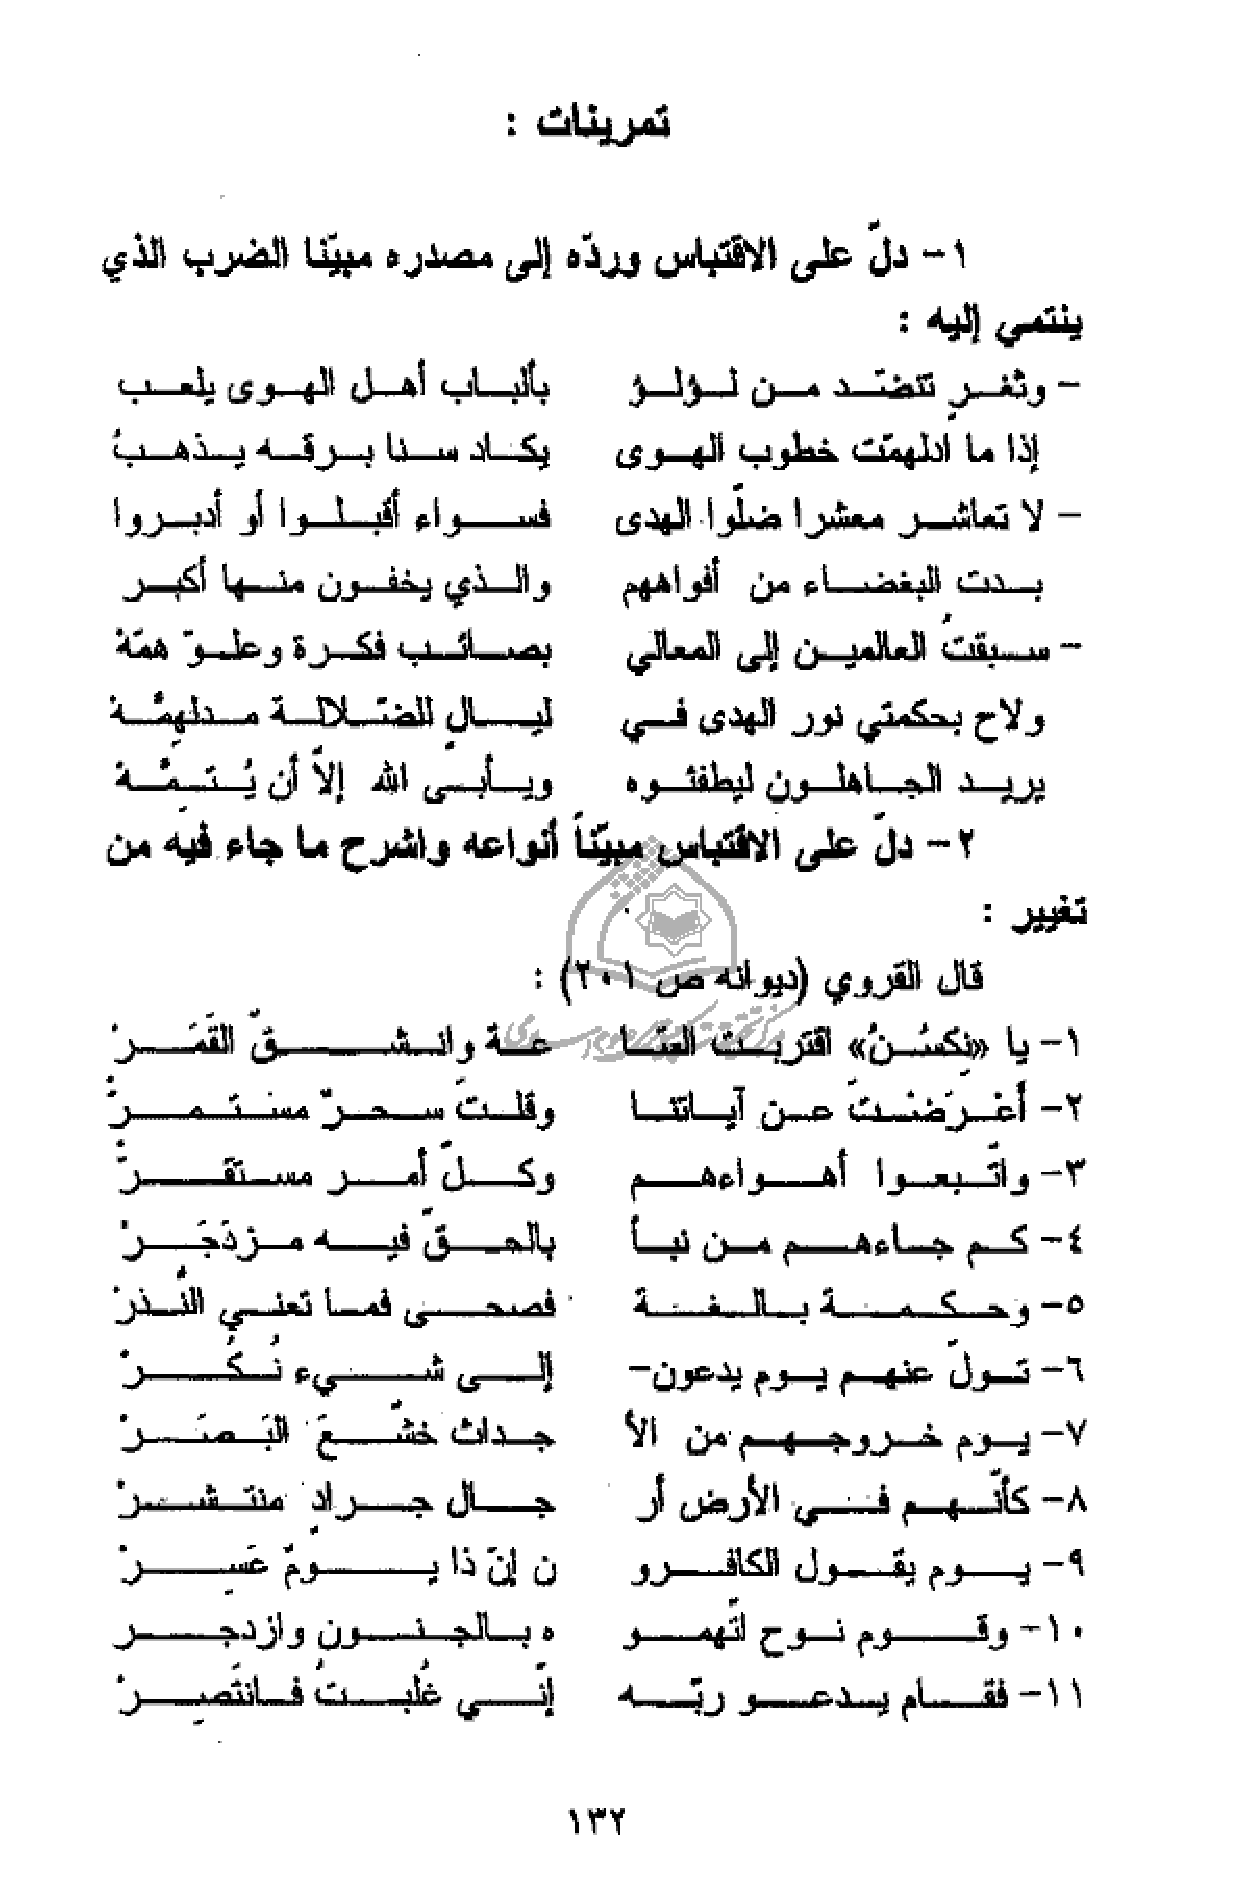 تمرينات :
١- دلّ على الاقتباس وردّه إلى مصدره مبيّنا الضرب الذي
ينتمي إليه :
- وثغرٍ تنضّد من لؤلؤ بألباب أهل الهوى يلعب
إذا ما ادلهمّت خطوب الهوى يكاد سنا برقه يذهبُ
- لا تعاشر معشرا ضلّوا الهدى فسواء أقبلوا أو أدبروا
بدت البغضاء من أفواههم والذي يخفون منها أكبر
- سبقتُ العالمين إلى المعالي بصائب فكرة وعلوّ همّة
ولاح بحكمتي نور الهدى في ليالٍ للضّلالة مدلهمّة
يريد الجاهلون ليطفئوه ويأبى الله إلاّ أن يُتِمّة
٢- دلّ على الاقتباس مبيّناً أنواعه واشرح ما جاء فيه من
تغيير :
قال القروي (ديوانه ص ٢٠١) :
١- يا «نِكسُنُ» اقتربت العتا عة وانشقّ القَمَرْ
٢- أعْرَضْتَ عن آياتنا وقلتَ سحرٌ مستمرّْ
٣- واتّبعوا أهواءهم وكلّ أمر مستقرّْ
٤- كم جاءهم من نبأ بالحقّ فيه مزدَجَرْ
٥- وحكمة بالغة فصحى فما تعني النُذرْ
٦- تولّ عنهم يوم يدعون- إلى شيء نُكُرْ
٧- يوم خروجهم من الأ جداث خشّعَ البَصَرْ
٨- كأنّهم في الأرض أر جال جرادٍ منتشرْ
٩- يوم يقول الكافرو ن إنّ ذا يومٌ عَسِرْ
١٠- وقوم نوح اتّهمو ه بالجنون وازدجر
١١- فقام يدعو ربّه إنّي غُلبتُ فانتَصِرْ
١٣٢